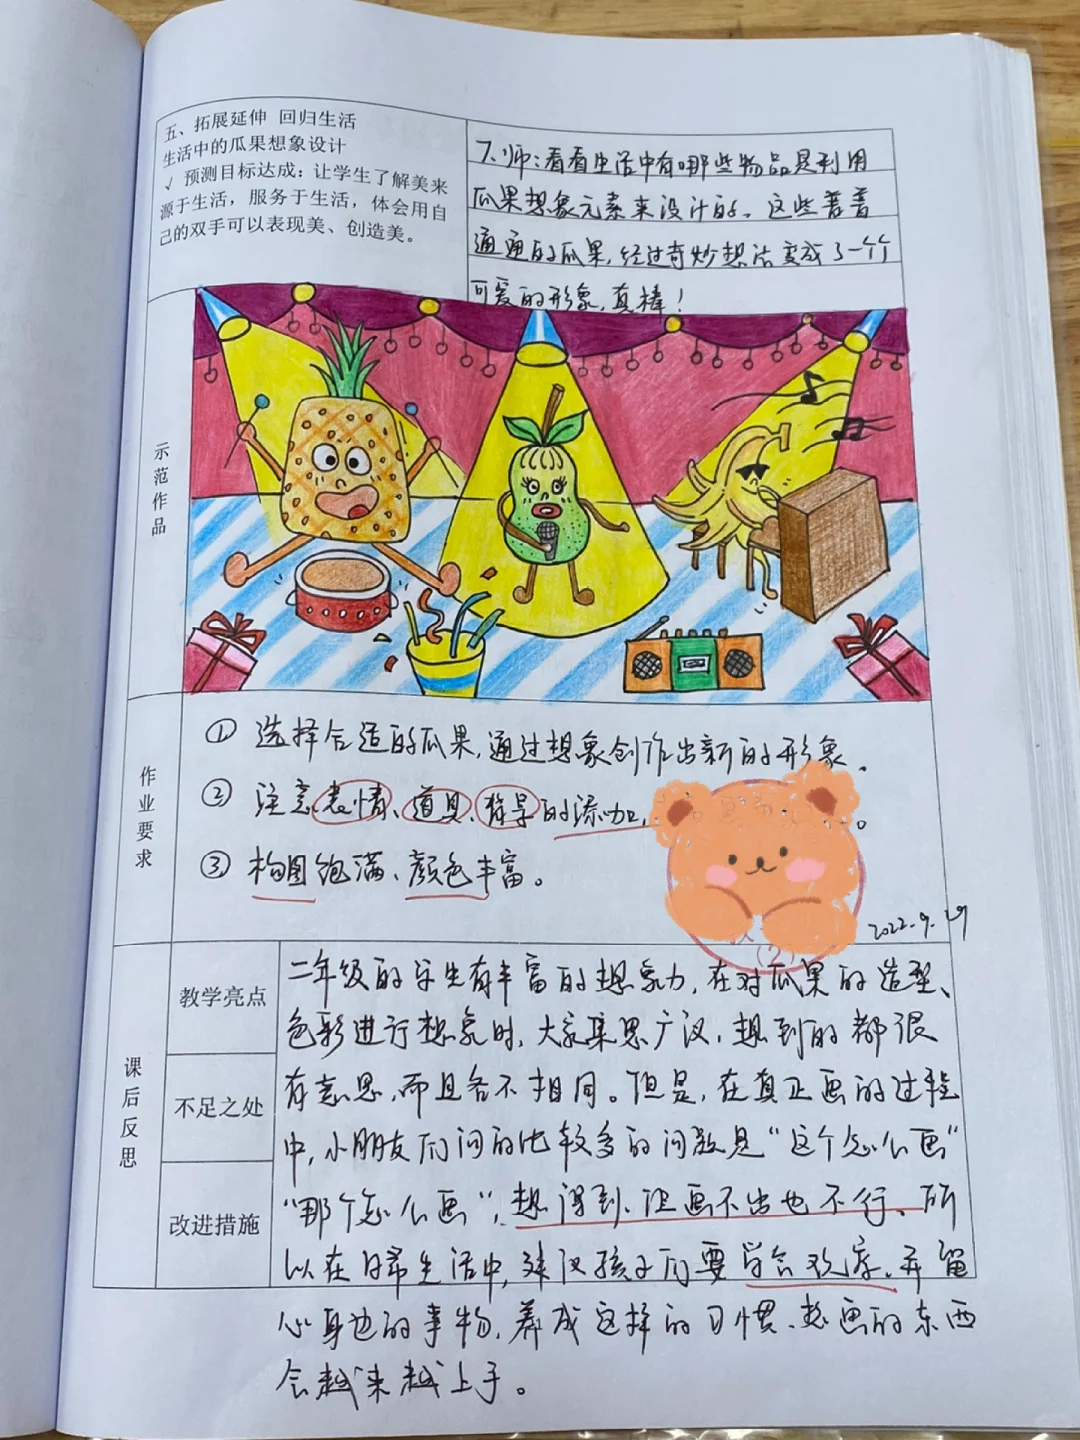 五、拓展延伸 回归生活
生活中的瓜果想象设计
√ 预测目标达成：让学生了解美来
源于生活，服务于生活，体会用自
己的双手可以表现美、创造美。
7.师：看看生活中有哪些物品是利用
瓜果想象元素来设计的。这些普普
通通的瓜果，经过奇妙想法变成了一个个
可爱的形象，真棒！
示范作品
作业要求
① 选择合适的瓜果，通过想象创作出新的形象。
② 注意表情、道具、背景的添加，
③ 构图饱满、颜色丰富。
2022.9.19
课后反思
教学亮点
不足之处
改进措施
二年级的学生有丰富的想象力，在对瓜果的造型、
色彩进行想象时，大家集思广议，想到的都很
有意思，而且各不相同。但是，在真正画的过程
中，小朋友们问的比较多的问题是“这个怎么画”
“那个怎么画”，想得到，但画不出也不行、所
以在日常生活中，建议孩子们要学会观察、并留
心身边的事物，养成这样的习惯、想画的东西
会越来越上手。